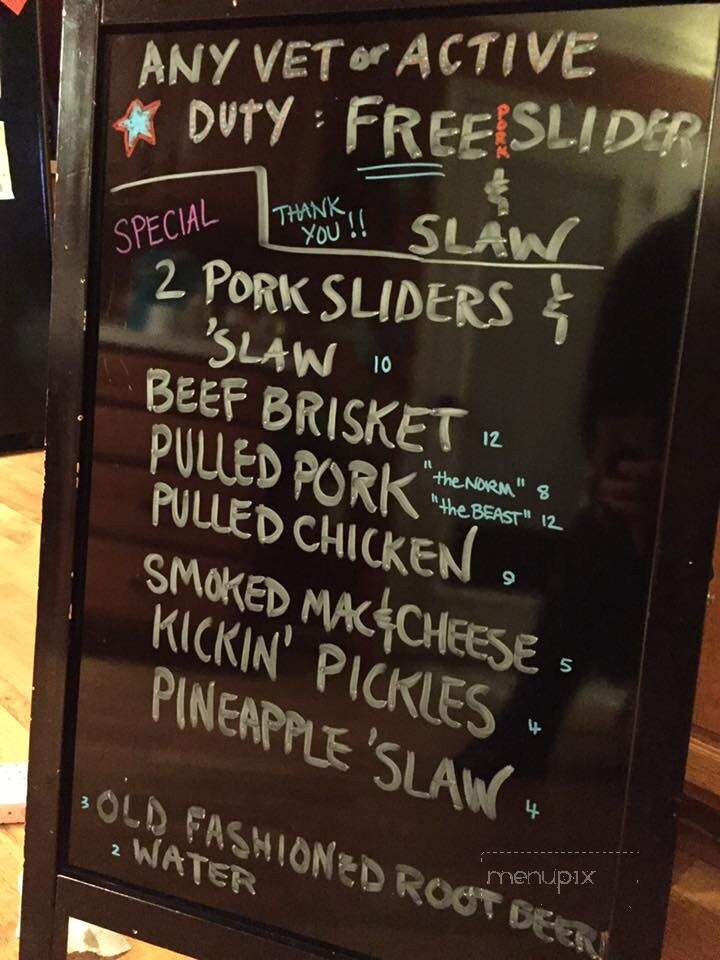 ANY VET or ACTIVE
DUTY : FREE PORK SLIDER
&
SLAW
THANK
YOU !!
SPECIAL
2 PORK SLIDERS &
'SLAW 10
BEEF BRISKET 12
PULLED PORK "the NORM" 8
"the BEAST" 12
PULLED CHICKEN 9
SMOKED MAC & CHEESE 5
KICKIN' PICKLES 4
PINEAPPLE 'SLAW 4
3 OLD FASHIONED ROOT BEER
2 WATER
menupix